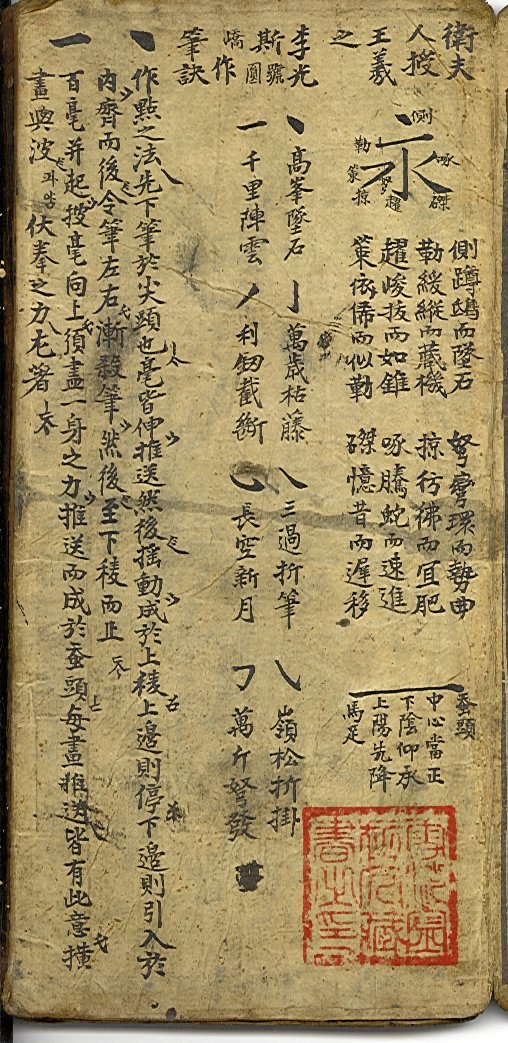 衛夫
人授
王羲
之
側
勒
啄
永
策
掠
趯
磔
側蹲鴟而墜石 弩彎環而勢曲
勒緩縱而藏機 掠彷彿而宜肥
趯峻拔而如錐 啄騰蛇而速進
策依俙而似勒 磔憶昔而遲移
蚕頭
中心當正
下陰仰承
上陽先降
馬足
李光
斯號圓
嶠作
筆訣
丶高峯墜石 亅萬歲枯藤 ㇏三過折筆 ㇂嶺松折掛
一千里陣雲 丿利釼截斷 ㇃長空新月 ㇆萬斤弩發
丶作點之法先下筆於尖頭也毫皆伸推送然後搖動成於上稜上邊則停下邊則引入於
內齊而後令筆左右漸殺筆然後至下稜而止
一百毫并起按毫向上須盡一身之力推送而成於蚕頭每畫推送皆有此意橫
畫與波 伏奉之力尤著